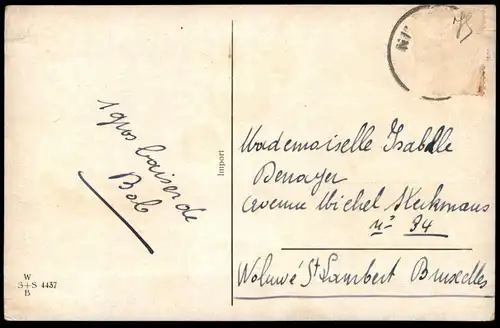 1 gros baiser de
Bob
Import
Mademoiselle Isabelle
Denayer
avenue Michel Sterckmans
n° 94
Woluwé St Lambert Bruxelles
W
3+S 4437
B